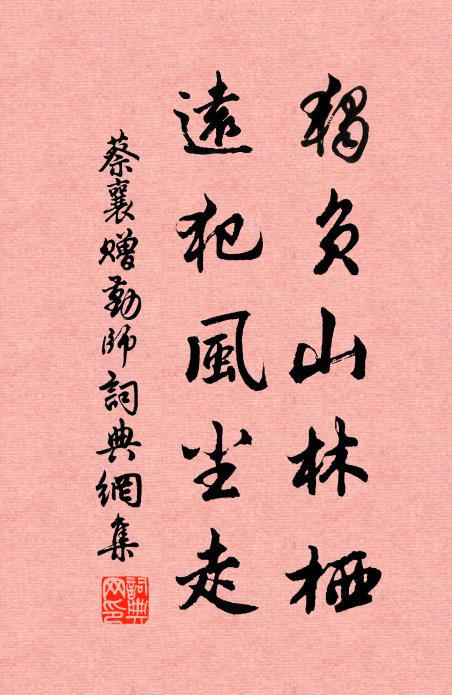 獨負山林栖
遠犯風尘走
蔡襄贈勤师詞典網集
詞典网印